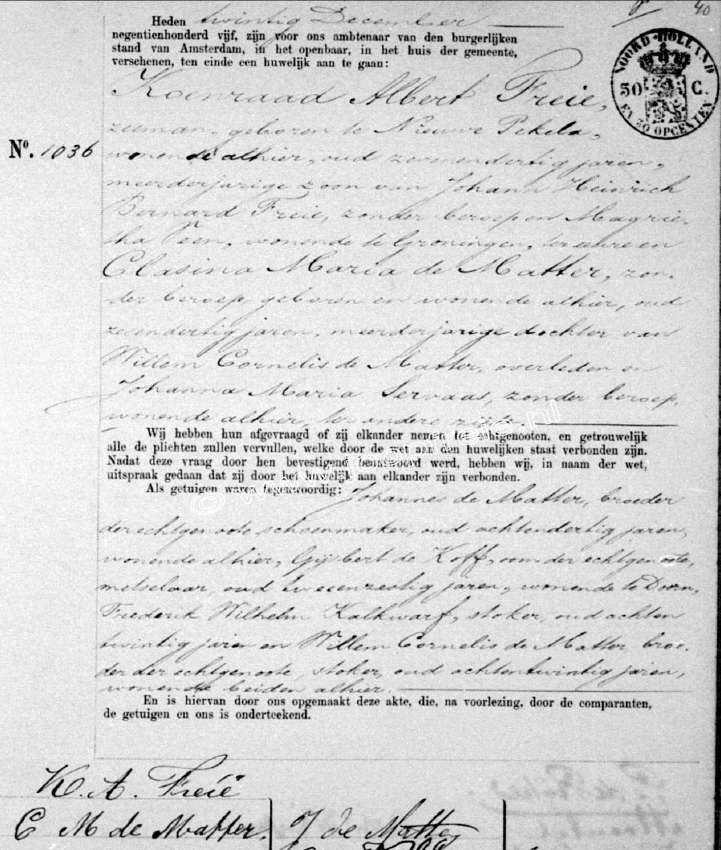 Heden twintig December
negentienhonderd vijf, zijn voor ons ambtenaar van den burgerlijken
stand van Amsterdam, in het openbaar, in het huis der gemeente,
verschenen, ten einde een huwelijk aan te gaan:
40
NOORD-HOLLAND
50 C.
EN 50 OPCENTEN
Koenraad Albert Freie,
zeeman, geboren te Nieuwe Pekela,
No. 1036
wonende alhier, oud zevenendertig jaren,
meerderjarige zoon van Johann Heinrich
Bernard Freie, zonder beroep en Magrie-
tha Veen, wonende te Groningen, ter eenre en
Clasina Maria de Matter, zon-
der beroep, geboren en wonende alhier, oud
zesendertig jaren, meerderjarige dochter van
Willem Cornelis de Matter, overleden en
Johanna Maria Servaas, zonder beroep,
wonende alhier, ter andere zijde.
Wij hebben hun afgevraagd of zij elkander nemen tot echtgenooten, en getrouwelijk
alle de plichten zullen vervullen, welke door de wet aan den huwelijken staat verbonden zijn.
Nadat deze vraag door hen bevestigend beantwoord werd, hebben wij, in naam der wet,
uitspraak gedaan dat zij door het huwelijk aan elkander zijn verbonden.
Als getuigen waren tegenwoordig: Johannes de Matter, broeder
der echtgenoote, schoenmaker, oud achtendertig jaren,
wonende alhier, Gijsbert de Koff, oom der echtgenoote,
metselaar, oud tweeenzestig jaren, wonende te Doorn,
Frederik Wilhelm Kalkwarf, stoker, oud achten
twintig jaren en Willem Cornelis de Matter, broe-
der der echtgenoote, stoker, oud achtentwintig jaren,
wonende beiden alhier.
En is hiervan door ons opgemaakt deze akte, die, na voorlezing, door de comparanten,
de getuigen en ons is onderteekend.
K. A. Freië
C M de Matter. J de Matter